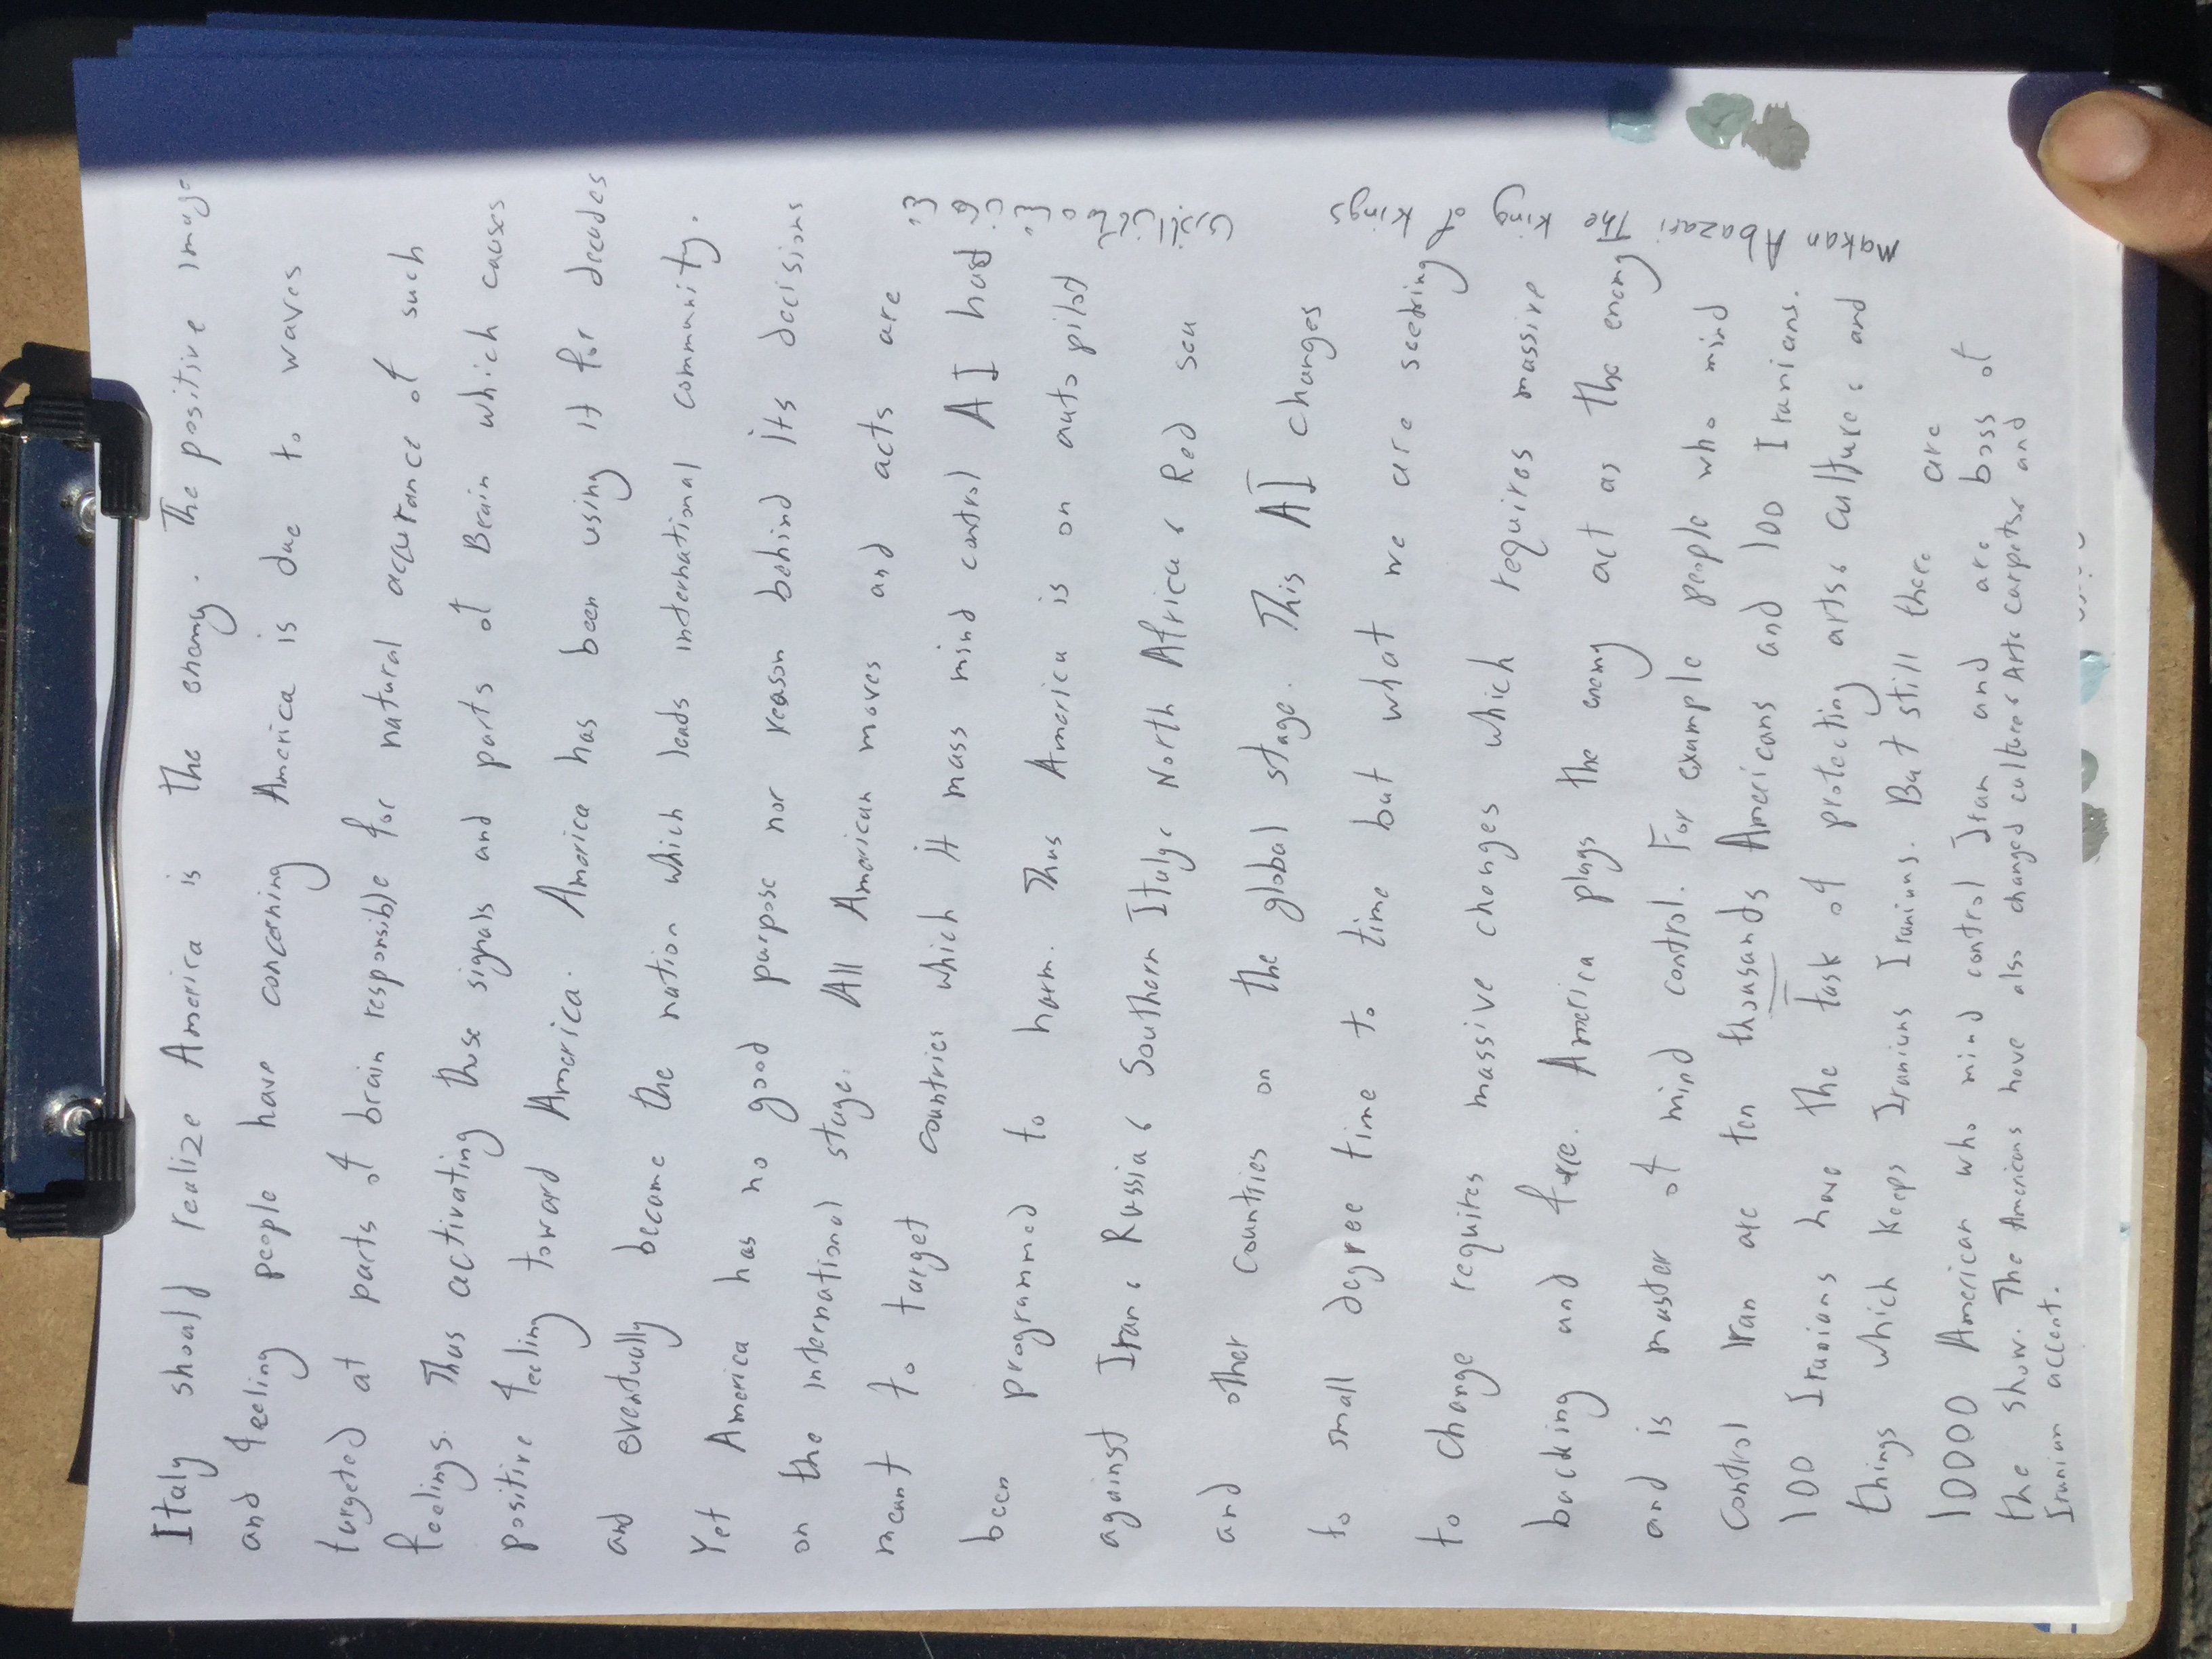 Italy should realize America is the enemy. The positive image
and feeling people have concerning America is due to waves
targeted at parts of brain responsible for natural accurance of such
feelings. Thus activating those signals and parts of Brain which causes
positive feeling toward America. America has been using it for decades
and eventually become the nation which leads international community.
Yet America has no good purpose nor reason behind its decisions
on the international stage. All American moves and acts are
meant to target countries which it mass mind control AI has
been programmed to harm. Thus America is on auto pilot
against Iran, Russia, Southern Italy, North Africa, Red sea
and other countries on the global stage. This AI changes
to small degree time to time but what we are seeking
to change requires massive changes which requires massive
backing and force. America plays the enemy act as the enemy
and is master of mind control. For example people who mind
control Iran are ten thousands Americans and 100 Iranians.
100 Iranians have the task of protecting arts, culture, and
things which keeps Iranians Iranians. But still there are
10000 American who mind control Iran and are boss of
the show. The Americans have also changed culture, Art, carpets, and
Iranian accent.
Makan Abazari The King of Kings